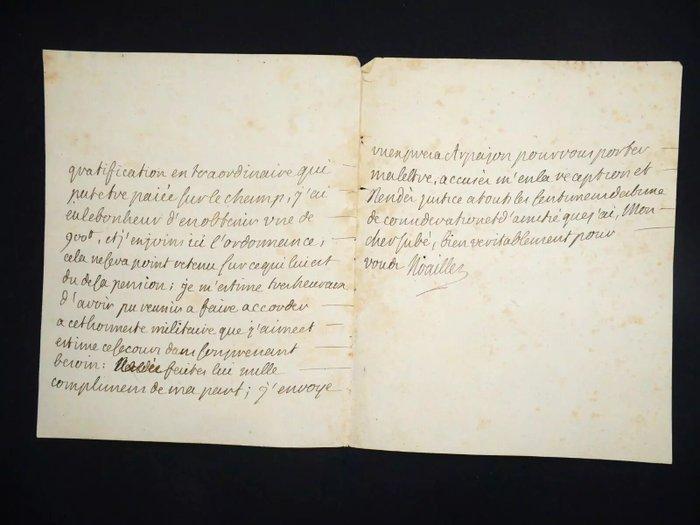 gratification extraordinaire qui
put etre paiée sur le champ, j'ai
eu le bonheur d'en obtenir une de
900#, et j'en joins ici l'ordonnance,
cela ne sera point retenu sur ce qui lui est
du de sa pension; je m'estime tres heureux
d'avoir pu reussir a faire accorder
a cet honneste militaire que j'aime et
estime ce secours dans son prenant
besoin: faites lui mille
complimens de ma part; j'envoye
un exprès a Arpajon pour vous porter
ma lettre, accusés m'en la reception et
rendés justice a tous les sentimens d'estime
de consideration et d'amitié que j'ai, Mon
cher Subé, bien veritablement pour
vous Noailles